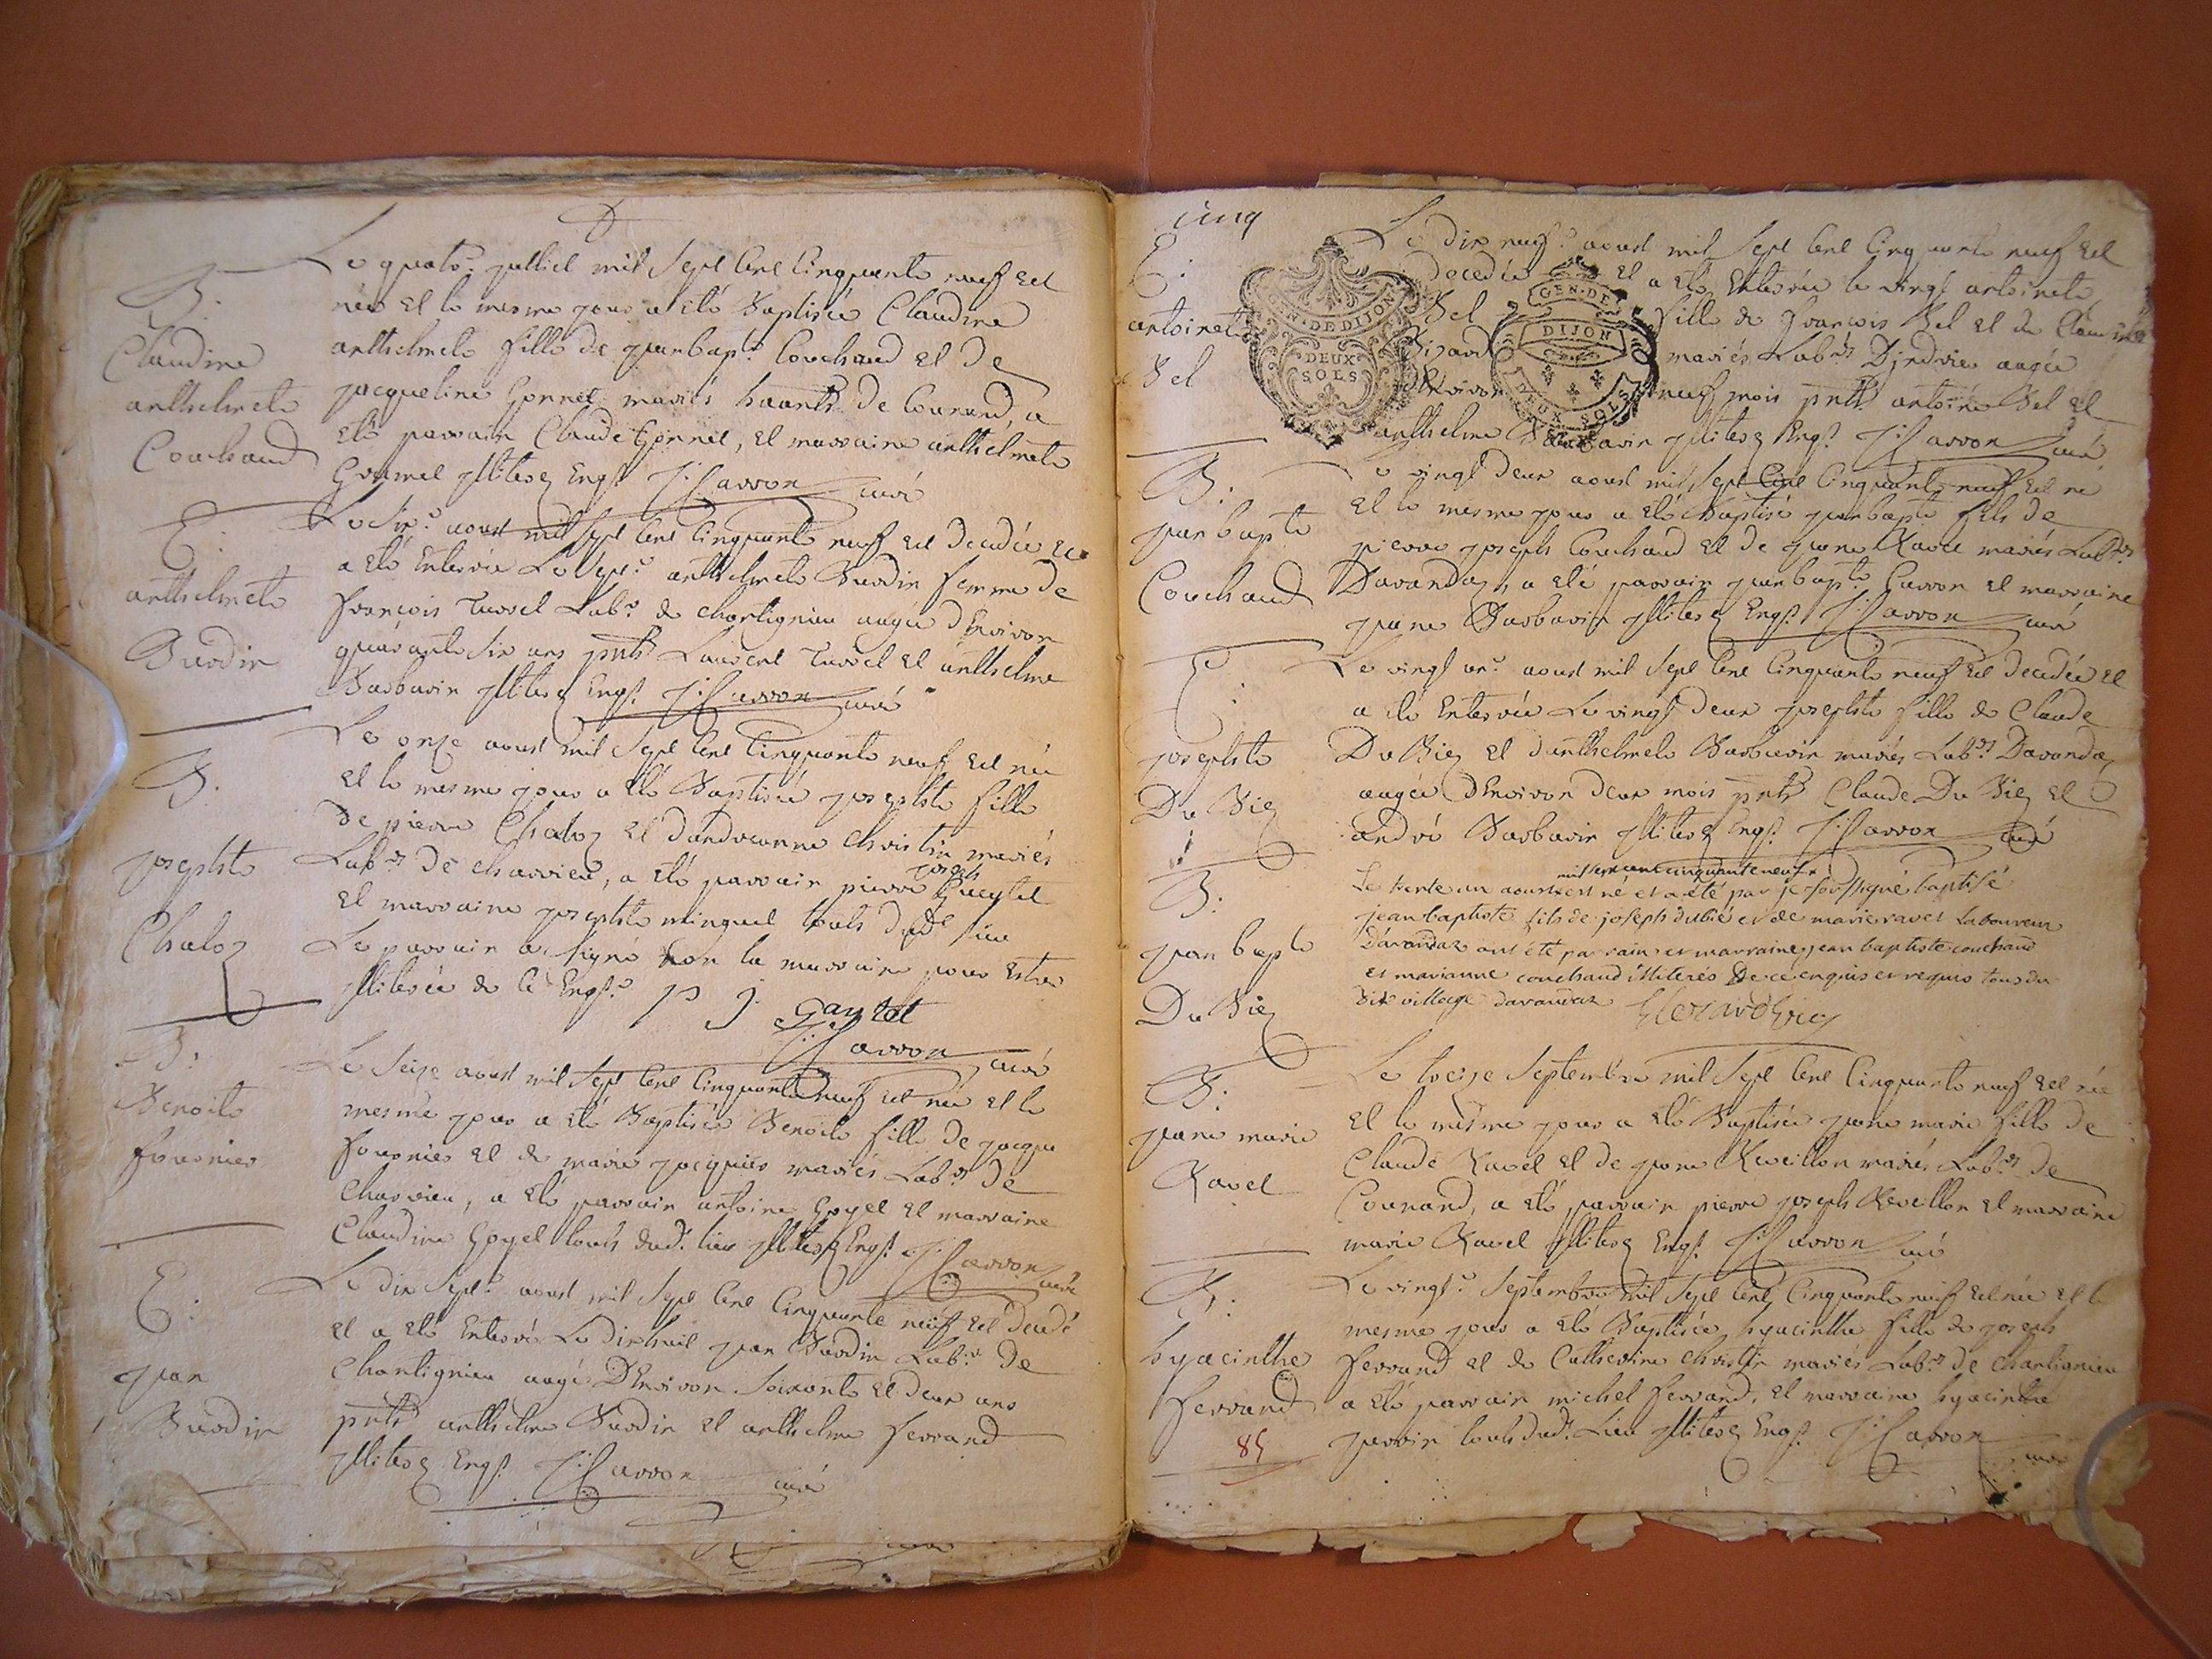 B:
Claudine
anthelmete
Couchaud
Le quato.e julliet mil sept cent cinquante neuf est
née et le mesme jour a eté Baptisée Claudine
anthelmete fille de jeanbap.te Couchaud et de
jacqueline Gonnet mariés haants de Counand, a
eté parrain Claude Gonnet, et marraine anthelmete
illiterez Enq.s J: Carron curé
E:
anthelmete
Burdin
Le six.e aoust mil sept cent cinquante neuf est decedée et
a eté Enterrée Le sept.e anthelmete Burdin femme de
françois Turrel Lab.r de chantignieu aagée d'Environ
quarante six ans pnts Laurent Turrel et anthelme
Barbarin illiterez Enq.s J: Carron curé
B:
josephte
Chaloz
Le onze aoust mil sept cent cinquante neuf est née
et le mesme jour a eté Baptisée josephte fille
de pierre Chaloz et d'andreanne christin mariés
Lab.rs de charvieu, a eté parrain pierre joseph
et marraine josephte minguet touts dud.t lieu
Le parrain a signé non la marraine pour estre
illiterée de ce Enq.se P J
J: Carron curé
B:
Benoite
fournier
Le seize aoust mil sept cent cinquante neuf est née et le
mesme jour a eté Baptisée Benoite fille de jacque
fournier et de marie jacquier mariés Lab.rs de
charvieu, a eté parrain antoine Goyet et marraine
Claudine Goyet touts dud.t lieu illiterez Enq.s J: Carron curé
E:
jean
Burdin
Le dix sept.e aoust mil sept cent cinquante neuf est decedé
et a eté Enterré Le dixhuit jean Burdin Lab.r de
Chantignieu aagé D'Environ soixante et deux ans
pnts anthelme Burdin et anthelme ferrand
illiterez Enq.s J: Carron curé
cinq
E:
antoinete
Bel
Le dix neuf.e aoust mil sept cent cinquante neuf est
decedée et a eté Enterrée le vingt antoinete
Bel fille de françois Bel et de Claudine
mariés Lab.rs aagée
d'Environ neuf mois pnts antoine Bel et
anthelme Barbarin illiterez Enq.s J: Carron curé
GEN. DE DIJON
DEUX
SOLS
GEN. DE
DIJON
DEUX SOLS
B:
jean bapte
Couchaud
Le vingt deux aoust mil sept cent cinquante neuf est né
et le mesme jour a eté Baptisé jeanbapte fils de
pierre joseph Couchaud et de jeane Ravet mariés Lab.rs
Davandaz, a eté parrain jeanbap.te Carron et marraine
jeane Barbarin illiterez Enq.s J: Carron curé
E:
josephte
Du Biez
Le vingt un.e aoust mil sept cent cinquante neuf est decedée et
a eté Enterrée Le vingt deux josephte fille de Claude
Du Biez et d'anthelmete Barbarin mariés Lab.rs Davandaz
aagée d'Environ deux mois pnts Claude Du Biez et
andré Barbarin illiterez Enq.s J: Carron curé
B:
jean bapte
Du Biez
mil sept cent cinquante neuf
Le trente un aoust est né et a été par je soussigné baptisé
jean baptiste fils de joseph dubié et de marie ravet laboureur
D'avandaz ont été parrain et marraine jean baptiste couchaud
et marianne couchaud illiterés De ce enquis et requis tous du
Dit village davandaz
B:
jeane marie
Ravet
Le treize septembre mil sept cent cinquante neuf est née
et le mesme jour a eté Baptisée jeane marie fille de
Claude Ravet et de jeane Reveillon mariés Lab.rs de
Counand, a eté parrain pierre joseph Reveillon et marraine
marie Ravet illiterez Enq.s J: Carron curé
B:
hyacinthe
ferrand
85
Le vingt.e septembre mil sept cent cinquante neuf est née et le
mesme jour a eté Baptisée hyacinthe fille de joseph
ferrand et de Catherine christin mariés Lab.rs de chantignieu
a eté parrain michel ferrand, et marraine hyacinthe
touts dud.t Lieu illiterez Enq.s J: Carron curé